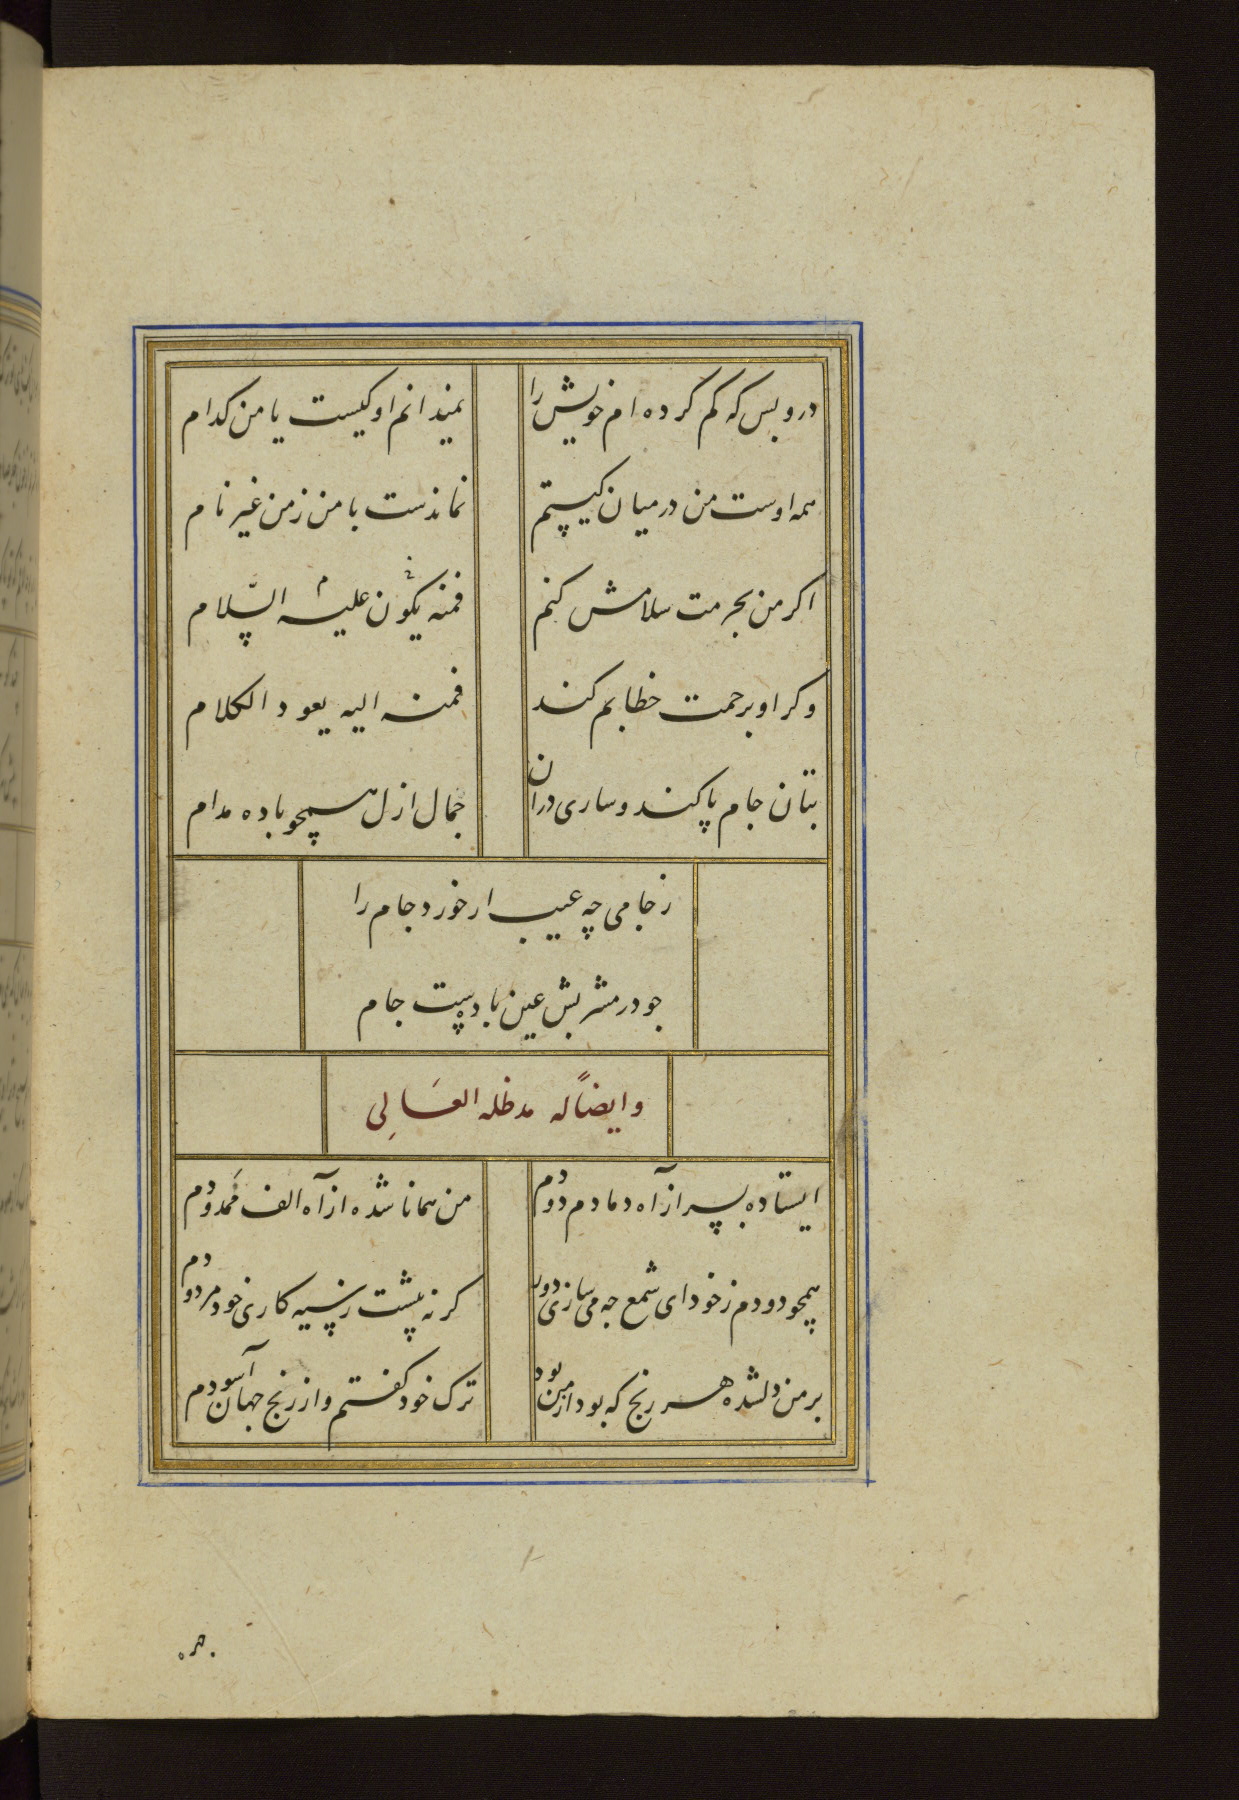 درو بس که کم کرده ام خویش را
نمیدانم او کیست یا من کدام
همه اوست من در میان کیستم
نماندست با من ز من غیر نام
اکر من بحرمت سلامش کنم
فمنه یکون علیه السّلام
وکر او برحمت خطابم کند
فمنه الیه یعود الکلام
بتان جام پاکند و ساری دران
جمال ازل همچو باده مدام
ز جامی چه عیب ار خورد جام را
جو در مشربش عین بادهست جام
وایضاً له مد ظله العَالِی
ایستاده بسر از آه دمادم دودم
من همانا شده از آه الف ممدودم
همچو دودم ز خود ای شمع جه می سازی دور
کر نه پیشت ز سیه کاری خود مردودم
بر من دلشده هر رنج که بود از من بود
ترک خود کفتم و از رنج جهان آسودم